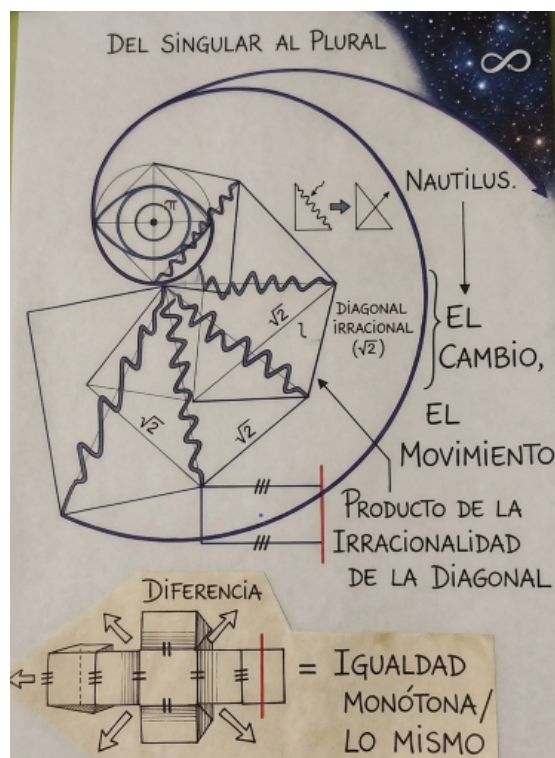 DEL SINGULAR AL PLURAL
∞
π
NAUTILUS.
√2
l
DIAGONAL
IRRACIONAL
(√2)
EL
CAMBIO,
EL
MOVIMIENTO
√2
√2
PRODUCTO DE LA
IRRACIONALIDAD
DE LA DIAGONAL
DIFERENCIA
= IGUALDAD
MONÓTONA/
LO MISMO